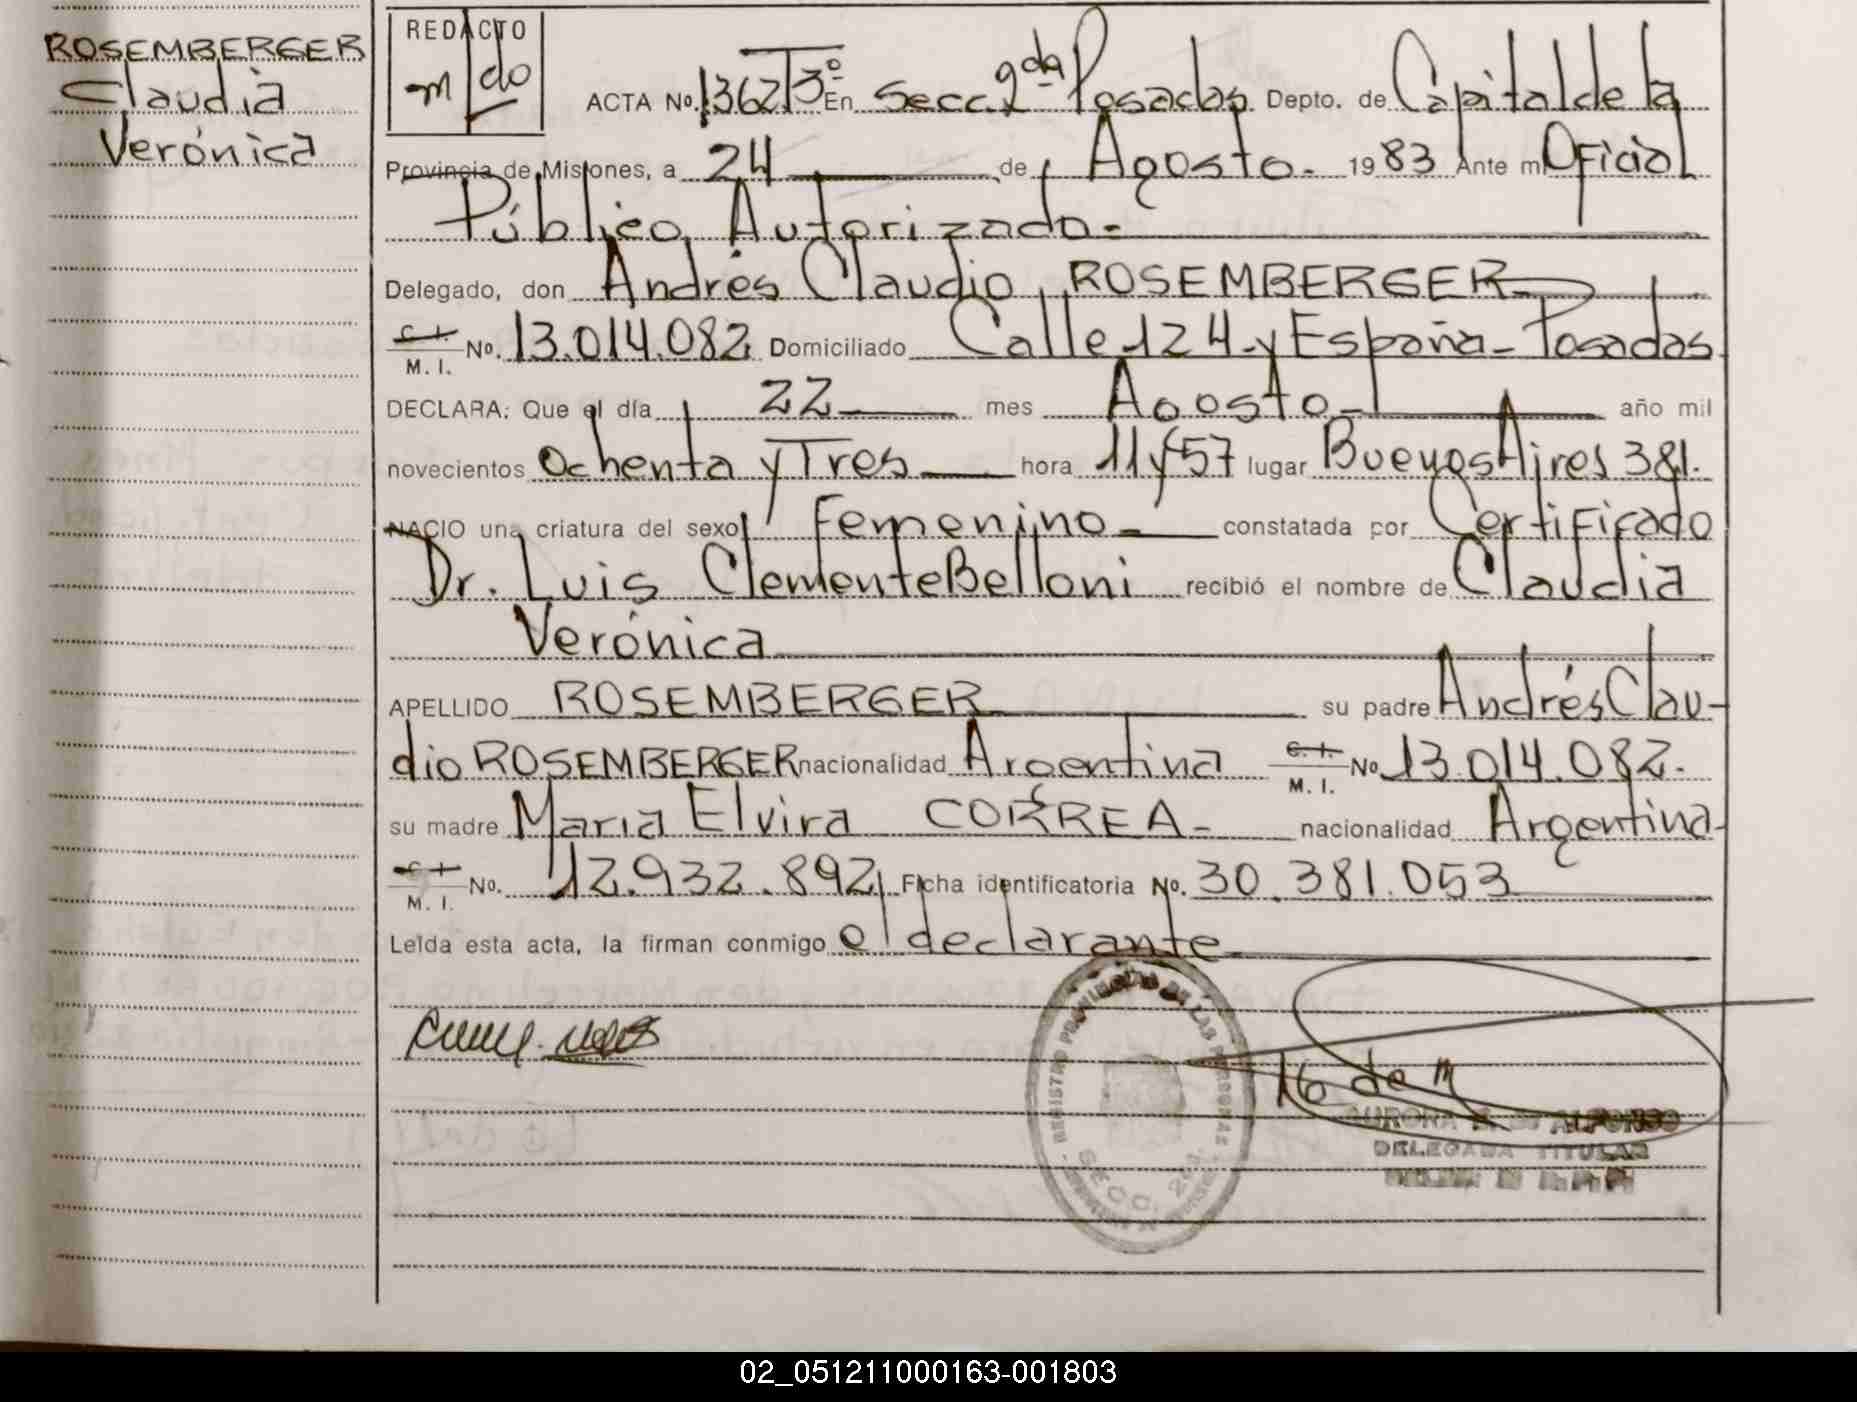 ROSEMBERGER
Claudia
Verónica
REDACTO
m do
ACTA No. 1362 T3º En Secc. 2da Posadas Depto. de Capital de la
Provincia de Misiones, a 24 de Agosto. 1983 Ante mí Oficial
Público Autorizado.
Delegado, don Andrés Claudio ROSEMBERGER
C. I. M. I. No. 13.014.082 Domiciliado Calle 124 y España - Posadas
DECLARA: Que el día 22 mes Agosto año mil
novecientos ochenta y Tres hora 11 y 57 lugar Buenos Aires 381.
NACIO una criatura del sexo Femenino constatada por Certificado
Dr. Luis Clemente Belloni recibió el nombre de Claudia
Verónica
APELLIDO ROSEMBERGER su padre Andrés Clau-
dio ROSEMBERGER nacionalidad Argentina C. I. M. I. No 13.014.082.
su madre María Elvira CORREA - nacionalidad Argentina
C. I. M. I. No. 12.932.892 Ficha identificatoria No. 30.381.053
Leída esta acta, la firman conmigo el declarante
REGISTRO PROVINCIAL DE LAS PERSONAS
SECC. 2da.
16 de m
DELEGADA TITULAR
02_051211000163-001803